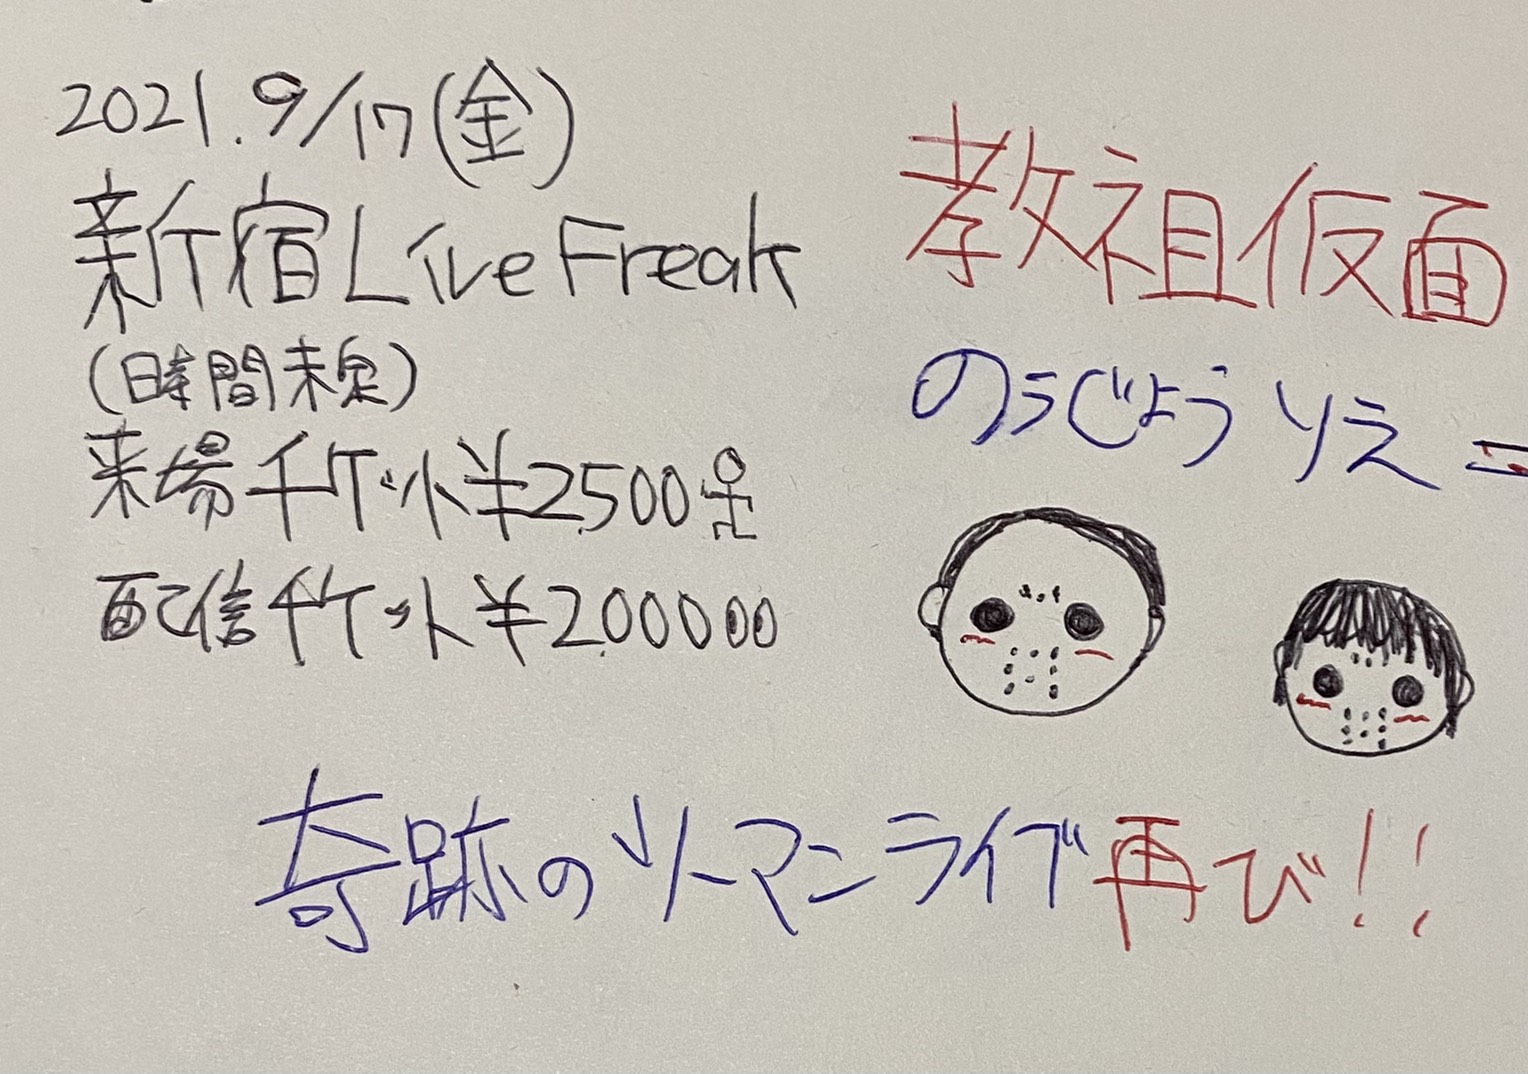 2021.9/17(金)
新宿Live Freak
(時間未定)
来場チケット¥2500
配信チケット¥200000
教祖仮面
のうじょうりえ
奇跡のツーマンライブ再び!!